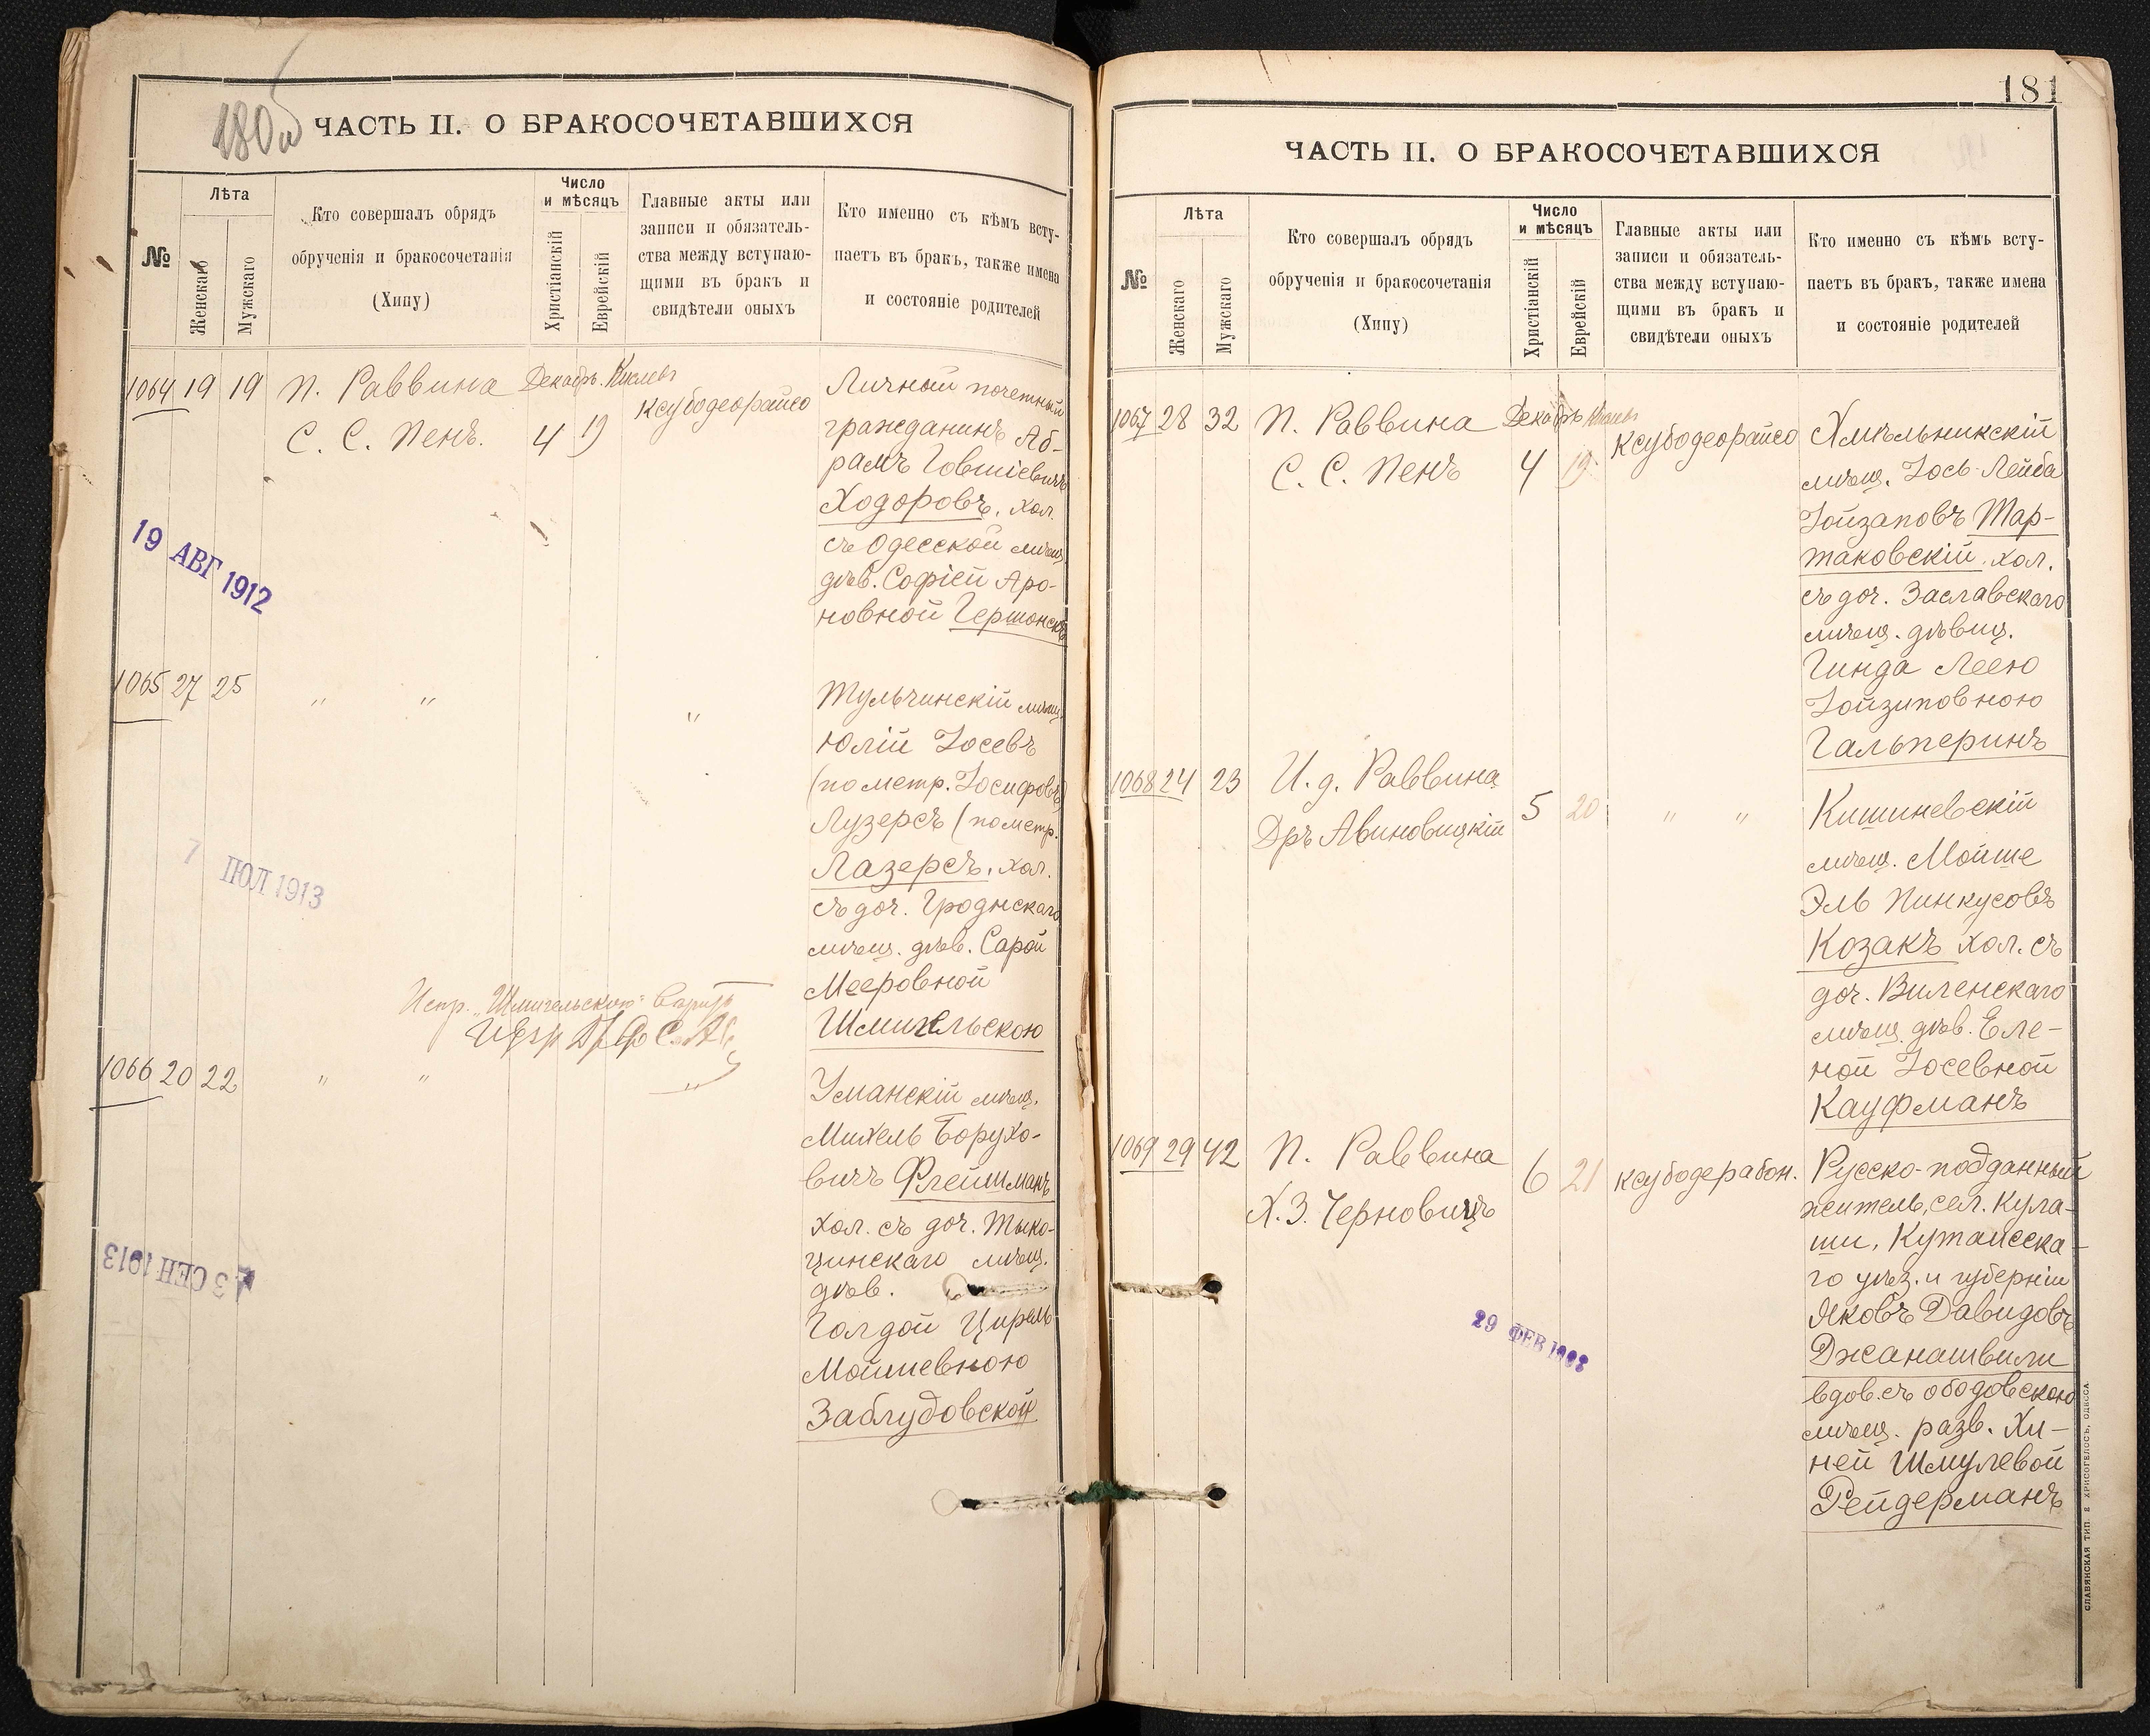 180 об
ЧАСТЬ II. О БРАКОСОЧЕТАВШИХСЯ
№
Лѣта
Женскаго
Мужскаго
Кто совершалъ обрядъ
обрученія и бракосочетанія
(Хипу)
Число
и мѣсяцъ
Христіанскій
Еврейскій
Главные акты или
записи и обязатель-
ства между вступаю-
щими въ бракъ и
свидѣтели оныхъ
Кто именно съ кѣмъ всту-
паетъ въ бракъ, также имена
и состояніе родителей
1064 19 19
П. Раввина
С. С. Пенъ.
Декабр. Кислевъ
4 19
ксубодеорайсо
Личный почетный
гражданинъ Аб-
рамъ Говшіевичъ
Ходоровъ, хол.
съ Одесской мѣщ.
дѣв. Софіей Аро-
новной Гершонскъ
19 АВГ 1912
1065 27 25
" "
"
Тульчинскій мѣщ.
Юлій Іосевъ
(по метр. Іосифовъ)
Лузерсъ (по метр.
Лазерсъ, хол.
съ доч. Гроднскаго
мѣщ. дѣв. Сарой
Мееровной
Шмигельскою
7 ІЮЛ 1913
Испр. "Шмигельскою"
1066 20 22
" "
"
Уманскій мѣщ.
Михель Борухо-
вичъ Флейшманъ
хол. съ доч. Тыко-
цинскаго мѣщ.
дѣв.
Голдой Цирель
Мойшевною
Заблудовской
3 СЕН 1913
181
ЧАСТЬ II. О БРАКОСОЧЕТАВШИХСЯ
№
Лѣта
Женскаго
Мужскаго
Кто совершалъ обрядъ
обрученія и бракосочетанія
(Хипу)
Число
и мѣсяцъ
Христіанскій
Еврейскій
Главные акты или
записи и обязатель-
ства между вступаю-
щими въ бракъ и
свидѣтели оныхъ
Кто именно съ кѣмъ всту-
паетъ въ бракъ, также имена
и состояніе родителей
1067 28 32
П. Раввина
С. С. Пенъ
Декабрь Кислевъ
4 19
Ксубодеорайсо
Хмѣльникскій
мѣщ. Іось-Лейба
Іойзаповъ Тар-
таковскій, хол.
съ доч. Заславскаго
мѣщ. дѣвиц.
Гинда Леею
Іойзиповною
Гальперинъ
1068 24 23
И. д. Раввина
Дръ Авиновицкій
5 20
" "
Кишиневскій
мѣщ. Мойше
Эль Пинкусовъ
Козакъ хол. съ
доч. Виленскаго
мѣщ. дѣв. Еле-
ной Іосевной
Кауфманъ
1069 29 42
П. Раввина
Х. З. Черновицъ
6 21
ксубодерабон.
Русско-подданный
житель, сел. Кула-
ши, Кутаисска-
го уѣз. и губерніи
Яковъ Давидовъ
Джанашвили
вдов. съ ободовскою
мѣщ. разв. Хи-
ней Шмулевой
Рейдерманъ
29 ФЕВ
СЛАВЯНСКАЯ ТИП. Е ХРИСОГЕЛОСЪ, ОДЕССА